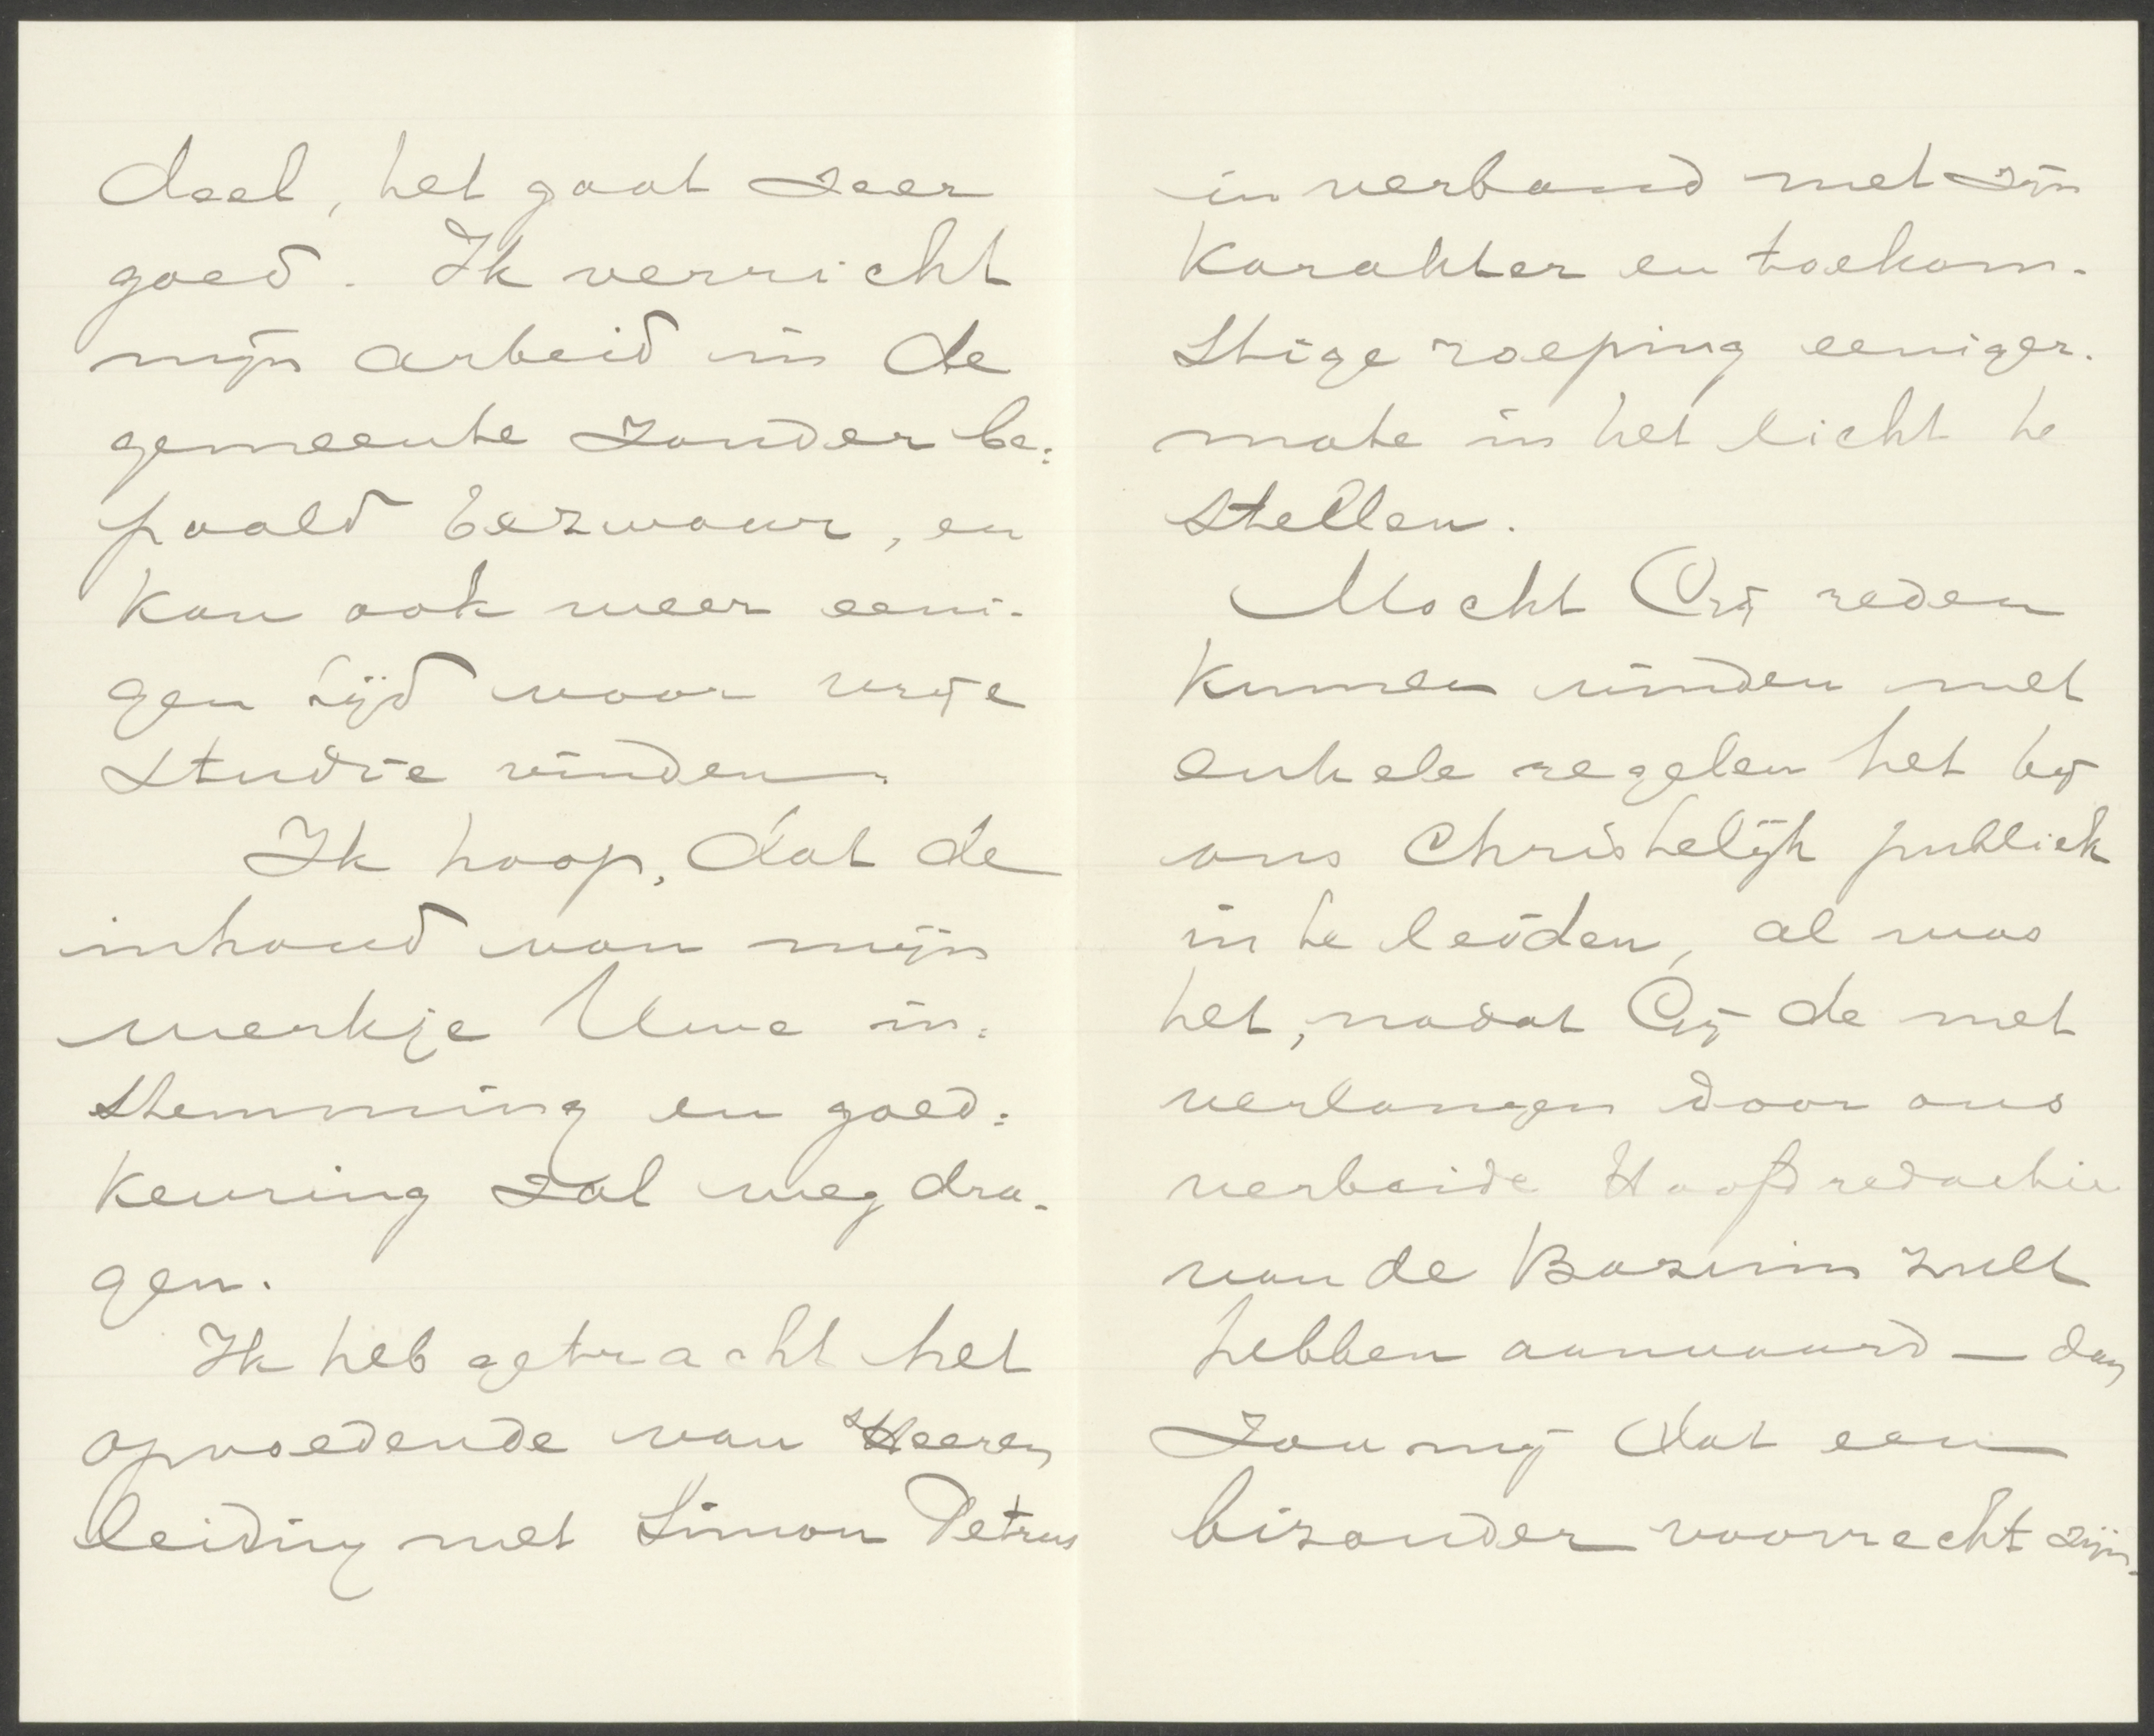 deel, het gaat zeer
goed. Ik verricht
mijn arbeid in de
gemeente zonder be:
paald bezwaar, en
kan ook weer eeni-
gen tijd voor vrije
studie vinden.
Ik hoop, dat de
inhoud van mijn
werkje Uwe in:
stemming en goed:
keuring zal weg dra-
gen.
Ik heb getracht het
opvoedende van 's Heeren
leiding met Simon Petrus
in verband met zijn
karakter en toekom-
stige roeping eeniger-
mate in het licht te
stellen.
Mocht Gij reden
kunnen vinden met
enkele regelen het bij
ons Christelijk publiek
in te leiden, al was
het, nadat Gij de met
verlangen door ons
verbeide Hoofdredactie
van de Bazuin zult
hebben aanvaard — dan
zou mij dat een
bizonder voorrecht zijn.